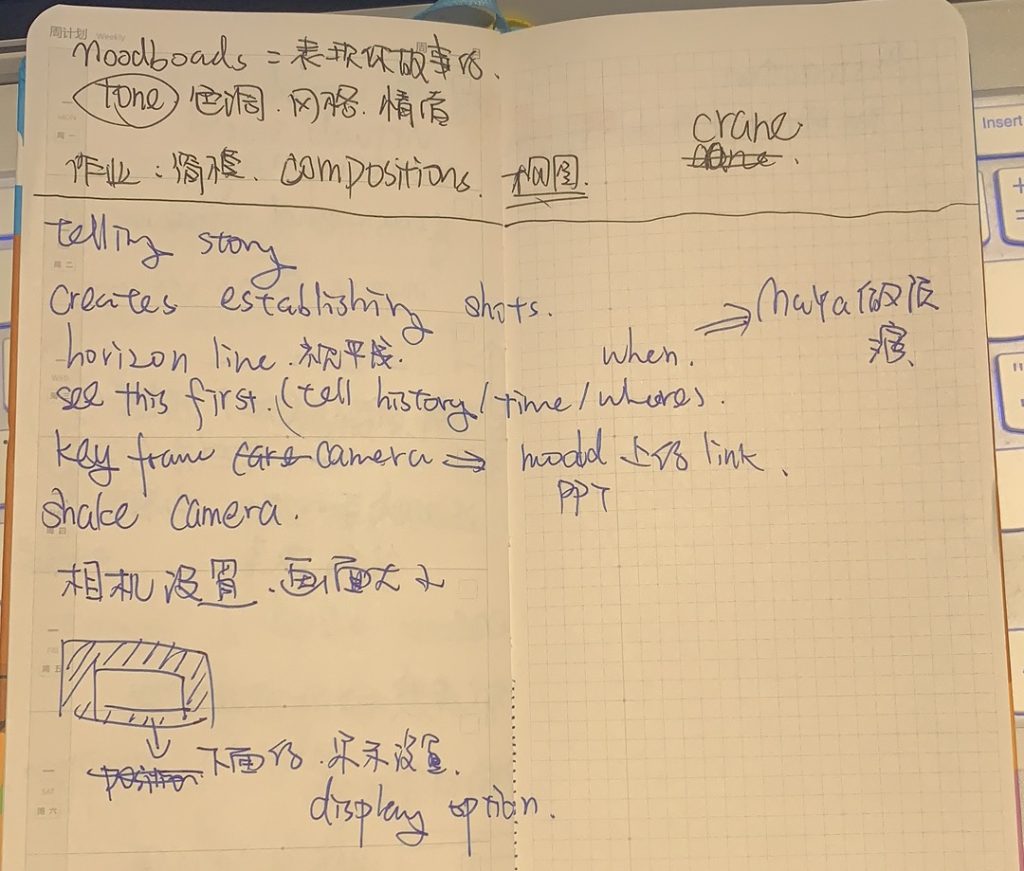 周计划 Weekly
moodboads = 表现你做事的.
tone 色调. 风格. 情质
crane.
作业: 简程. compositions. 构图.
telling story
creates establishing shots.
horizon line. 视平线.
when. ⇒ Maya做
see this first. (tell history/time/where).
key frame camera ⇒ moodd 上的 link.
PPT
shake camera.
相机设置. 画面大小
下面的. 显示设置.
display option.
Insert